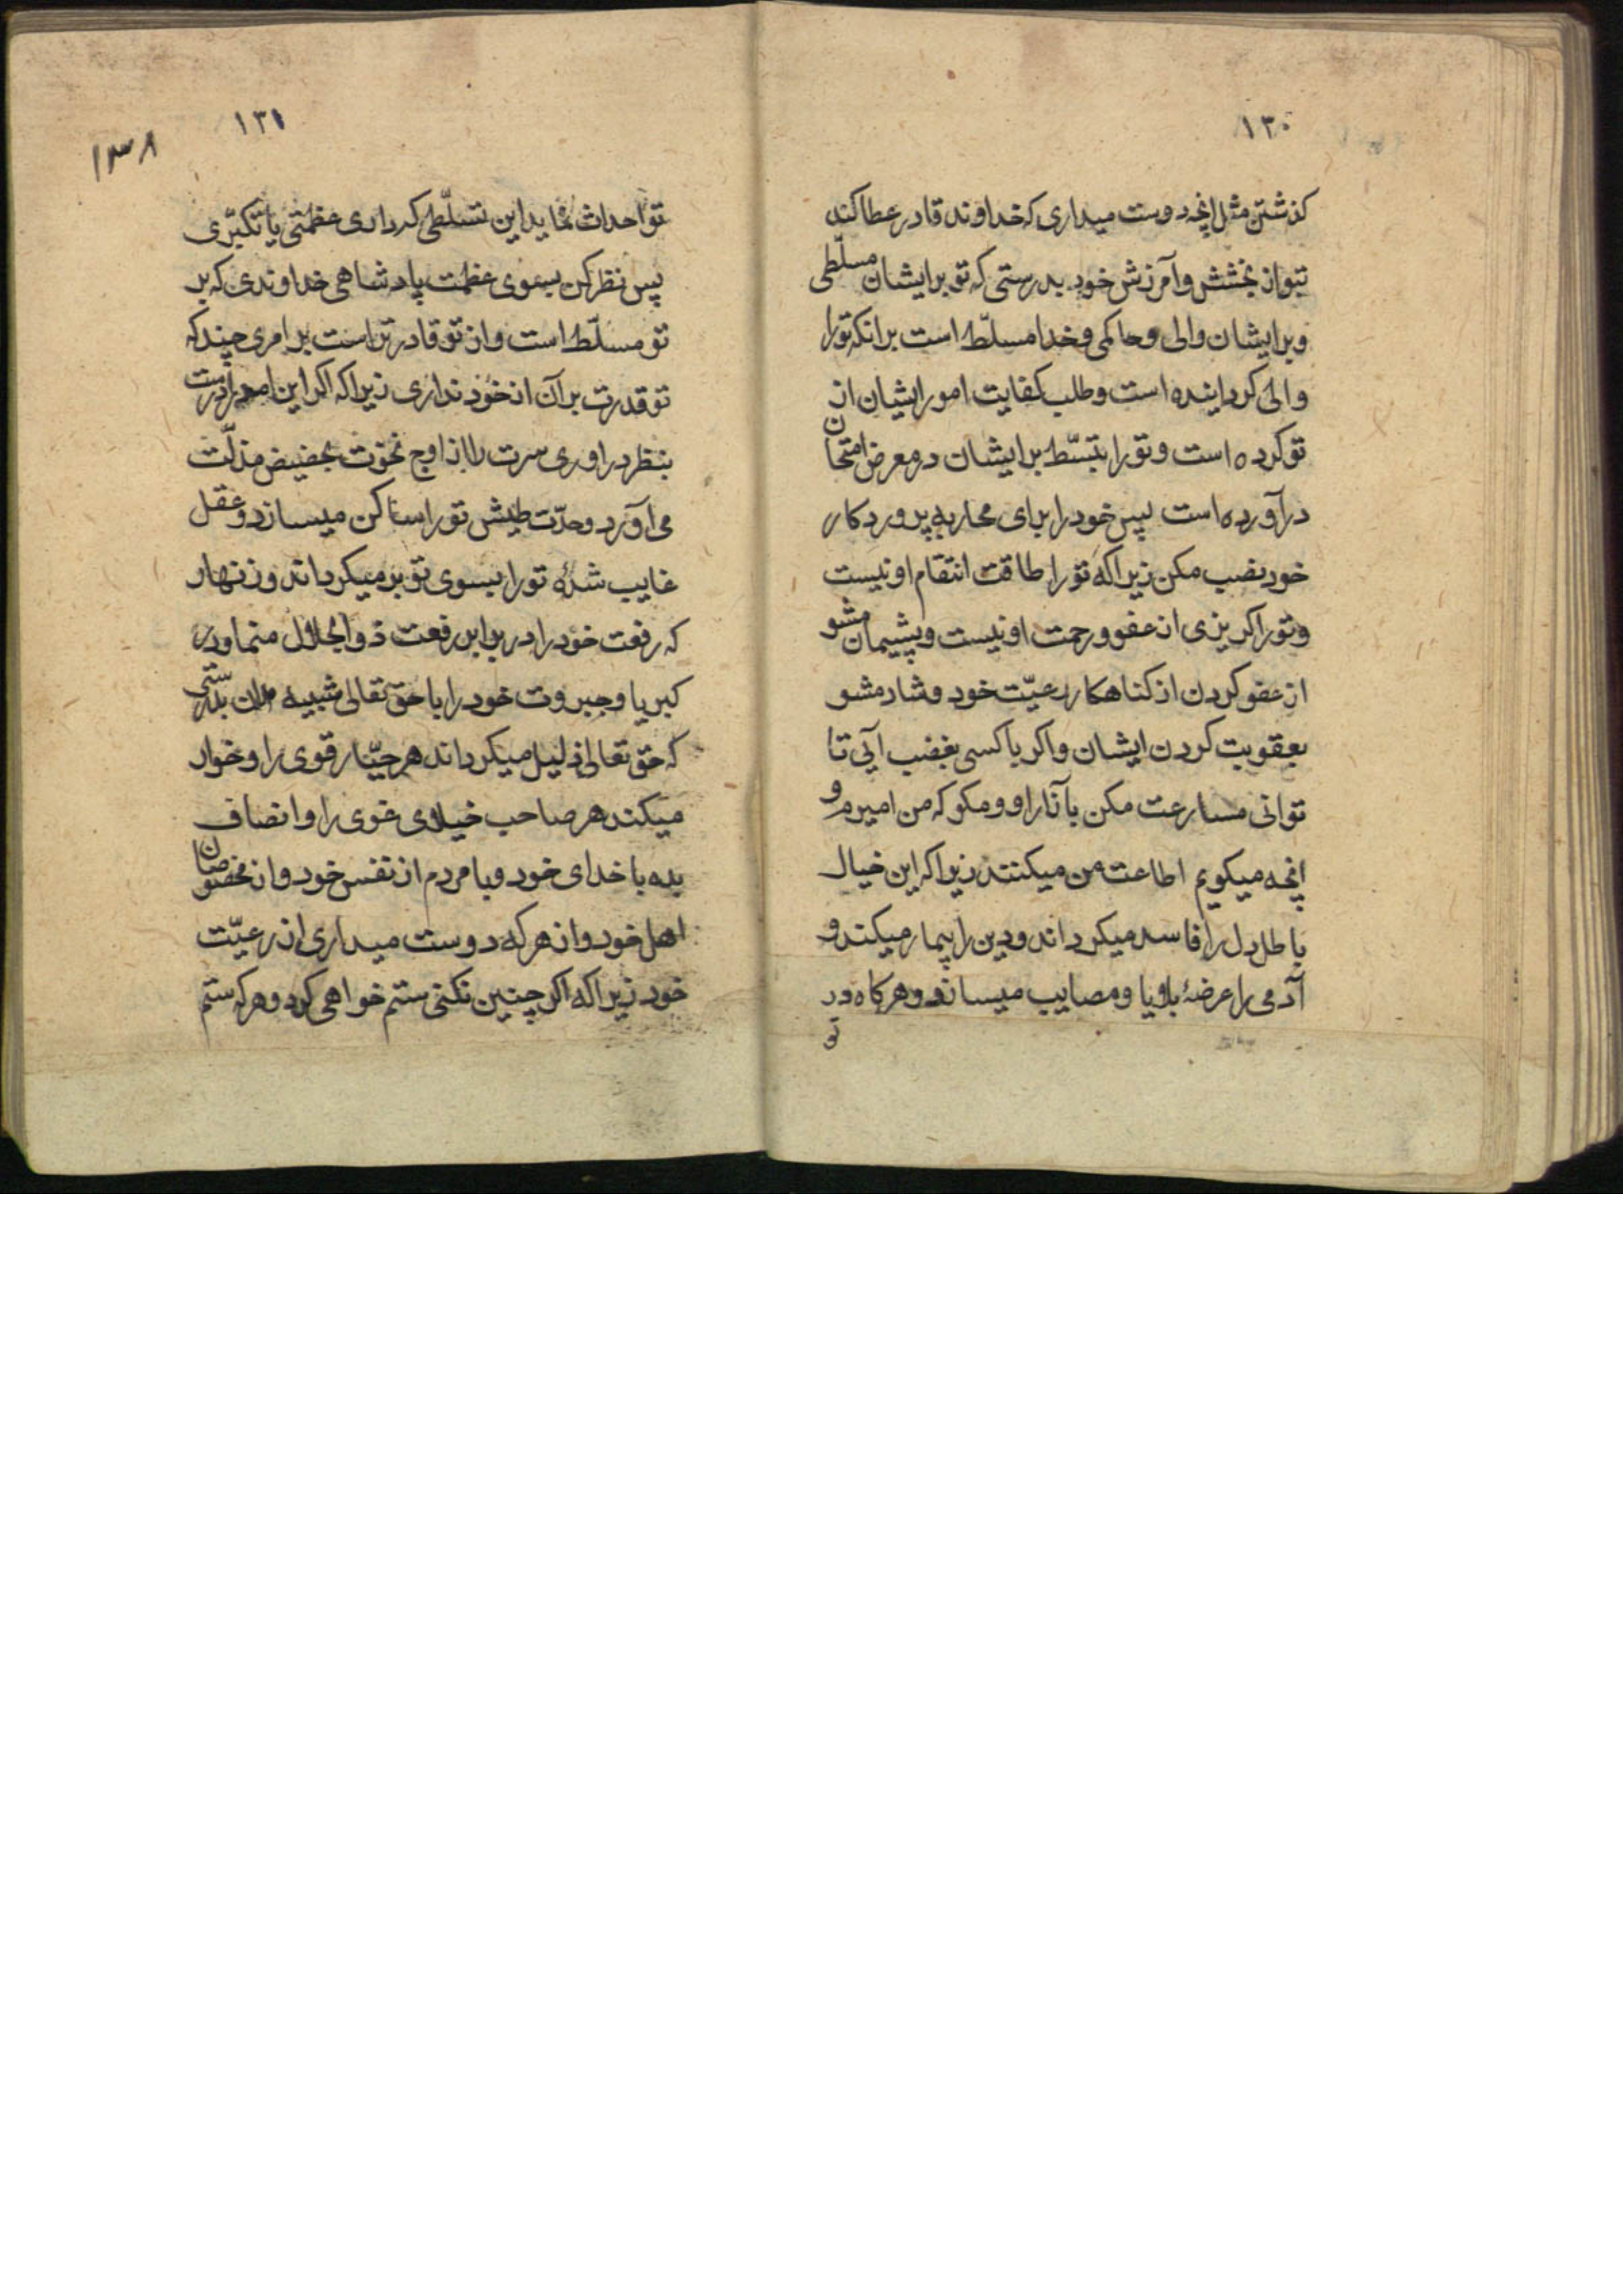 ۱۳۰
کذشتن مثل انچه دوست میداری که خداوند قادر عطا کند
بتو از بخشش و آمرزش خود بدرستی که تو بر ایشان مسلّطی
و بر ایشان والی و حاکمی و خدا مسلّط است بر انکه تو را
والی کردانیده است و طلب کفایت امور ایشان از
تو کرده است و تو را بتسّلط بر ایشان در معرض امتحان
در آورده است پس خود را برای محاربه پرورد کار
خود نصب مکن زیرا که تو را طاقت انتقام او نیست
و تو را کریزی از عفو و رحمت او نیست و پشیمان مشو
از عفو کردن از کناهکار رعیّت خود و شاد مشو
بعقوبت کردن ایشان و اکر با کسی بغضب آیی تا
توانی مسارعت مکن بآزار او و مکو که من امیرم و
انچه میکویم اطاعت من میکنند زیرا که این خیال
باطل دل را فاسد میکرداند و دین را بیمار میکند و
آدمی را عرضهٔ بلایا و مصایب میسازد و هرکاه در
تو
۱۳۱
۱۳۸
تو احداث نماید این تسلّطی که داری عظمتی یا تکبّری
پس نظر کن بسوی عظمت پادشاهی خداوندی که بر
تو مسلّط است و از تو قادر تر است بر امری چند که
تو قدرت بر آن از خود نداری زیرا که اکر این امر را درست
بنظر در اوری سرت را از اوج نخوت بحضیض مذلّت
می آورد و حدّت طیش تو را ساکن میسازد و عقل
غایب شدهٔ تو را بسوی تو بر میکرداند و زنهار
که رفعت خود را در برابر رفعت ذو الجلال منما و در
کبریا و جبروت خود را با حق تعالی شبیه مدان بدرستی
که حق تعالی ذلیل میکرداند هر جبّار قوی را و خوار
میکند هر صاحب خیلای غوی را و انصاف
بده با خدای خود و با مردم از نفس خود و از مخصوصان
اهل خود و از هر که دوست میداری از رعیّت
خود زیرا که اکر چنین نکنی ستم خواهی کرد و هر که ستم